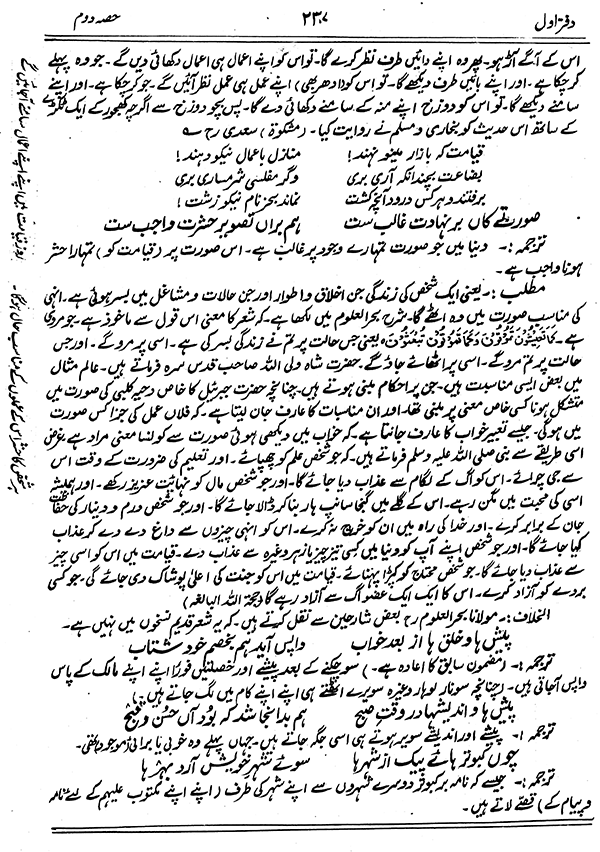 دفتر اول
۲۳۷
حصہ دوم
اس کے آگے اٹھ ہو۔ پھر وہ اپنے دائیں طرف نظر کرے گا۔ تو اس کو اپنے اعمال ہی اعمال دکھائی دیں گے۔ جو وہ پہلے
کر چکا ہے۔ اور اپنے بائیں طرف دیکھے گا۔ تو اس کو (ادھر بھی) اپنے عمل ہی عمل نظر آئیں گے۔ جو کر چکا ہے۔ اور اپنے
سامنے دیکھے گا۔ تو اس کو دوزخ اپنے منہ کے سامنے دکھائی دے گا۔ پس بچو دوزخ سے اگرچہ کھجور کے ایک ٹکڑے
کے ساتھ اس حدیث کو بخاری و مسلم نے روایت کیا۔ (مشکوٰۃ) سعدی رح ؎
قیامت کہ بازار مینو نہند! منازل باعمال نیکو دہند!
بضاعت بچندانکہ آری بری وگر مفلسی شرمساری بری
برفتند و ہر کس درود آنچہ کشت نماند بجز نام نیکو و زشت!
صورتے کاں بر نہادت غالب ست ہم براں تصویر حشرت واجب ست
ترجمہ:۔ دنیا میں جو صورت تمہارے وجود پر غالب ہے۔ اس صورت پر (قیامت کو) تمہارا حشر
ہونا واجب ہے۔
مطلب:۔ یعنی ایک شخص کی زندگی جن اخلاق و اطوار اور جن حالات و مشاغل میں بسر ہوئی ہے۔ انہی
کی مناسب صورت میں وہ اٹھے گا۔ شرح بحر العلوم میں لکھا ہے۔ کہ شعر کا معنی اس قول سے ماخوذ ہے۔ جو مروی
ہے۔ کَمَا تَعِیْشُوْنَ تَمُوْتُوْنَ وَکَمَا تَمُوْتُوْنَ تُبْعَثُوْنَ۔ یعنی جس حالت پر تم نے زندگی بسر کی ہے۔ اسی پر مرو گے۔ اور جس
حالت پر تم مرو گے۔ اسی پر اٹھائے جاؤ گے۔ حضرت شاہ ولی اللہ صاحب قدس سرہ فرماتے ہیں۔ عالم مثال
میں بعض ایسی مناسبات ہیں۔ جن پر احکام مبنی ہوتے ہیں۔ چنانچہ حضرت جبرئیل کا خاص دحیہ کلبی کی صورت میں
متشکل ہونا کسی خاص معنی پر مبنی تھا۔ اور ان مناسبات کا عارف جان لیتا ہے۔ کہ فلاں عمل کی جزا کس صورت
میں ہوگی۔ جیسے تعبیر خواب کا عارف جانتا ہے۔ کہ خواب میں دیکھی ہوئی صورت سے کونسا معنی مراد ہے۔ غرض
اسی طریقے سے نبی صلی اللہ علیہ وسلم فرماتے ہیں۔ کہ جو شخص علم کو چھپائے۔ اور تعلیم کی ضرورت کے وقت اس
سے جی چرائے۔ اس کو آگ کے لگام سے عذاب دیا جائے گا۔ اور جو شخص مال کو نہایت عزیز رکھے۔ اور ہمیشہ
اسی کی محبت میں مگن رہے۔ اس کے گلے میں گنجا سانپ ہار بنا کر ڈالا جائے گا۔ اور جو شخص درم و دینار کی حفاظت
جان کے برابر کرے۔ اور خدا کی راہ میں ان کو خرچ نہ کرے۔ اس کو انہی چیزوں سے داغ دے دے کر عذاب
کیا جائے گا۔ اور جو شخص اپنے آپ کو دنیا میں کسی تیز چیز یا زہر وغیرہ سے عذاب دے۔ قیامت میں اس کو اسی چیز
سے عذاب دیا جائے گا۔ جو شخص محتاج کو کپڑا پہنائے۔ قیامت میں اس کو جنت کی اعلیٰ پوشاک دی جائے گی۔ جو کسی
بردے کو آزاد کرے۔ اس کا ایک ایک عضو آگ سے آزاد رہے گا (حجۃ اللہ البالغہ)
الخلاف:۔ مولانا بحر العلوم رح بعض شارحین سے نقل کرتے ہیں۔ کہ یہ شعر قدیم نسخوں میں نہیں ہے۔
پیشہا و خلق ہا از بعد خواب واپس آید ہم بخصم خود شتاب
ترجمہ:۔ (مضمون سابق کا اعادہ ہے۔) سو چکنے کے بعد پیشے اور خصلتیں فوراً اپنے اپنے مالک کے پاس
واپس آ جاتی ہیں۔ (چنانچہ سونار لوہار وغیرہ سویرے اٹھتے ہی اپنے اپنے کام میں لگ جاتے ہیں۔)
پیشہا و اندیشہا در وقت صبح ہم بدانجا شد کہ بود آں حسن و قبح
ترجمہ:۔ پیشے اور اندیشے سویرے ہوتے ہی اسی جگہ جاتے ہیں۔ جہاں پہلے وہ خوبی یا برائی موجود تھی۔
چوں کبوتر ہائے پیک از شہرہا سوئے شہر خویش آرد بہرہا
ترجمہ:۔ جیسے کہ نامہ بر کبوتر دوسرے شہروں سے اپنے شہر کی طرف (اپنے اپنے مکتوب علیہم کے لئے نامہ
و پیام کے) قصے لاتے ہیں۔
روز قیامت میں اپنے اپنے اعمال سامنے آ جائیں گے
ہر شخص کا حشر اس کے عملوں کے مناسب حال ہوگا۔